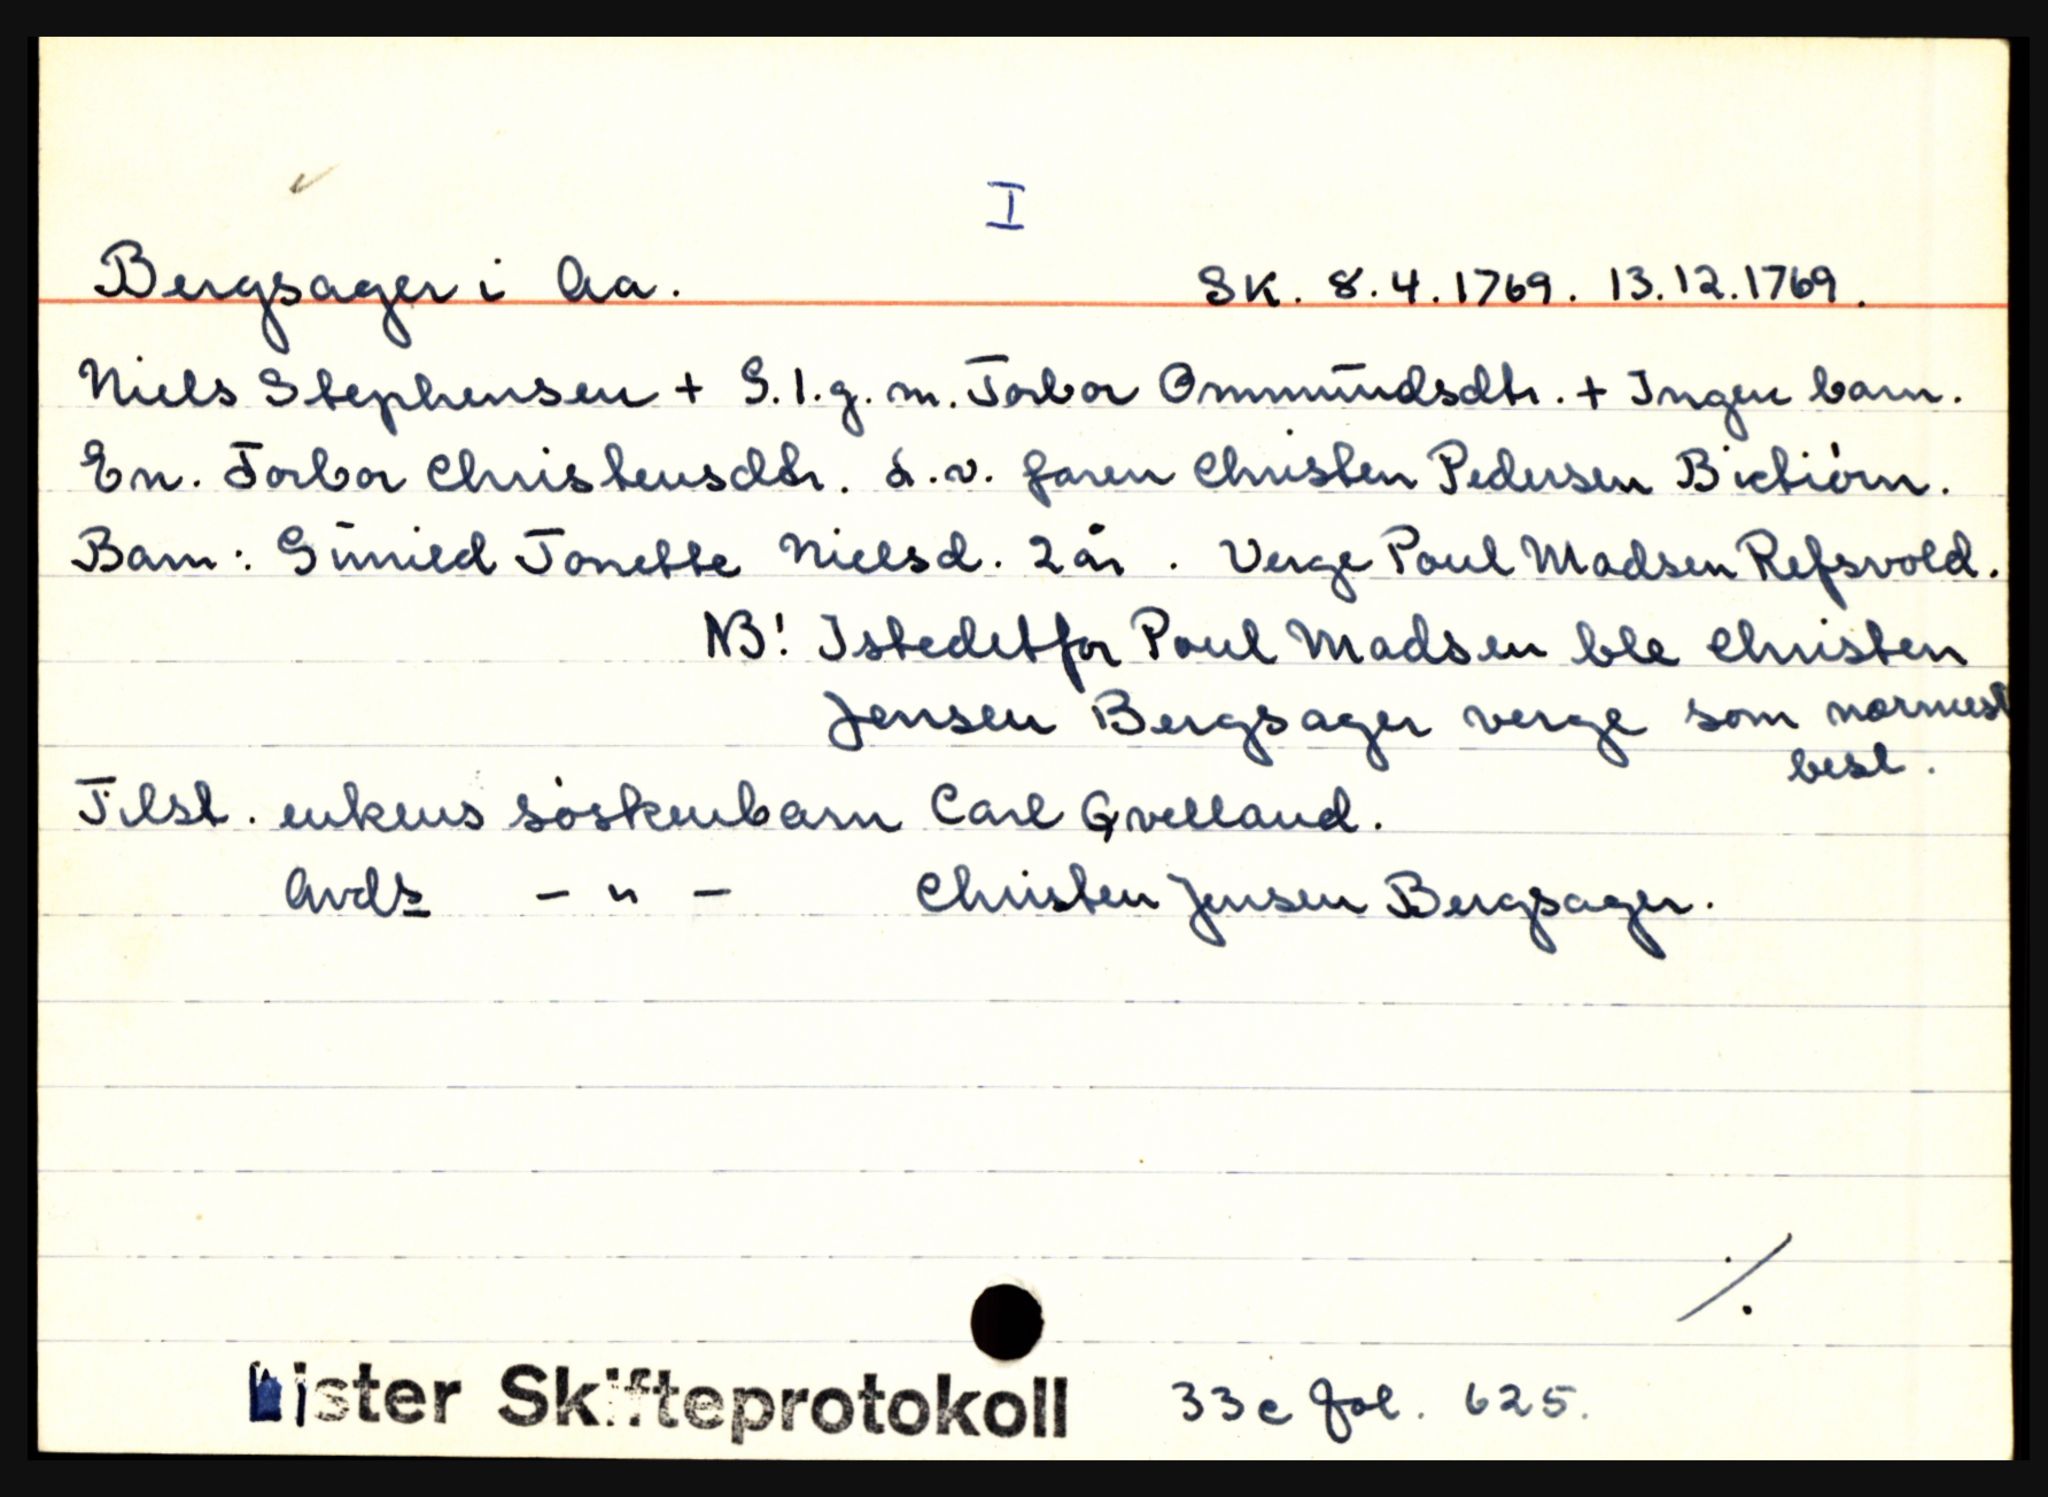 I
Bergsager i Aa. SK. 8.4.1769. 13.12.1769.
Niels Stephensen + G.1.g. m. Torbor Ommundsdtr. + Ingen barn.
En. Torbor Christensdtr. L.v. faren Christen Pedersen Bictiörn.
Barn: Gunild Tonette Nielsd. 2 år. Verge Poul Madsen Refsvold.
NB! Istedetfor Poul Madsen ble Christen
Jensen Bergsager verge som nærmest
besl.
Tilst. enkens söskenbarn Carl Qvelland.
Avds - " - Christen Jensen Bergsager.
./.
Lister Skifteprotokoll 33c fol. 625.